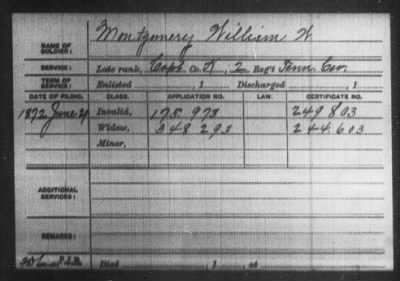 NAME OF SOLDIER: Montgomery William W
SERVICE: Late rank, Capt Co. , 2 Reg't Tenn Cav.
TERM OF SERVICE: Enlisted , 1 Discharged , 1
DATE OF FILING. CLASS. APPLICATION NO. LAW. CERTIFICATE NO.
1872 June 29 Invalid, 175 973 249 803
Widow, 248 293 244 603
Minor,
ADDITIONAL SERVICES:
REMARKS:
Died , 1 at